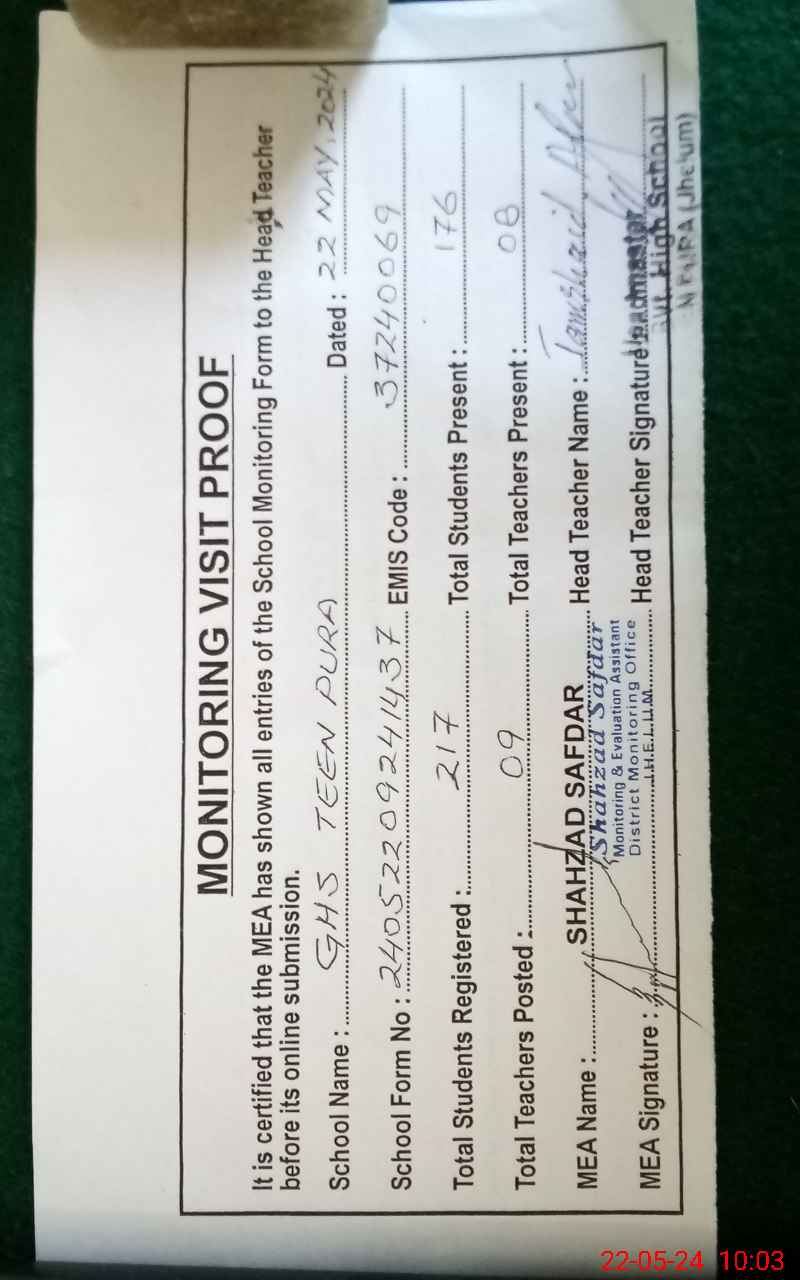 MONITORING VISIT PROOF
It is certified that the MEA has shown all entries of the School Monitoring Form to the Head Teacher
before its online submission.
School Name : GHS TEEN PURA Dated : 22 MAY, 2024
School Form No : 24052209241437 EMIS Code : 37240069
Total Students Registered : 217 Total Students Present : 176
Total Teachers Posted : 09 Total Teachers Present : 08
MEA Name : SHAHZAD SAFDAR Head Teacher Name : Jamshaid
Shahzad Safdar
Monitoring & Evaluation Assistant
District Monitoring Office
JHELUM
MEA Signature : Head Teacher Signature
Headmaster
High School
(Jhelum)
22-05-24 10:03